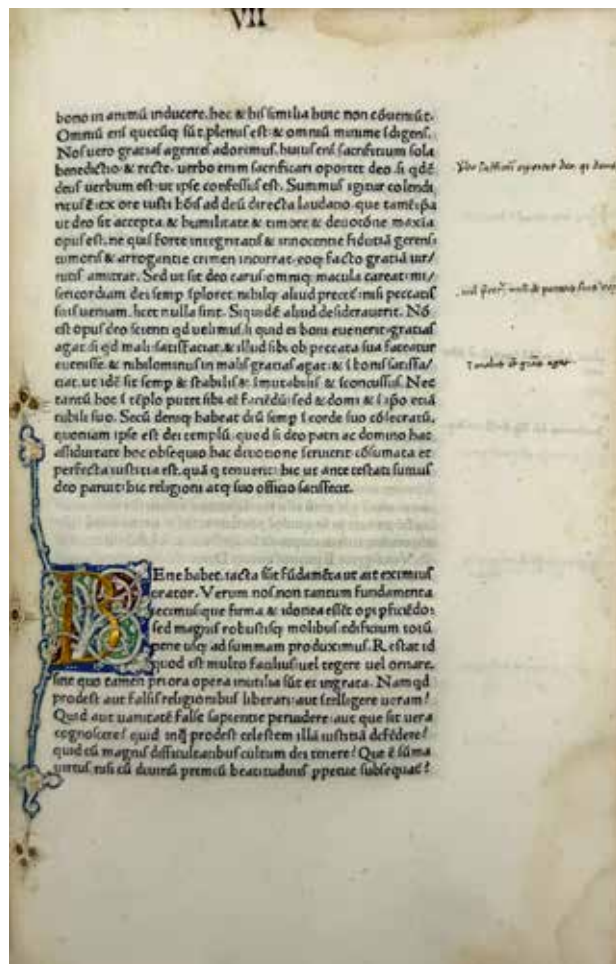 VII
bono in animū inducere. hec & his similia huic non cōveniūt.
Omniū eni quecūq sūt. plenus est: & omniū minime idigens.
Nos uero gratias agentes adorimus. huius eni sacrificium sola
benedictio & recte. uerbo enim sacrificari oportet deo. si qdē
deus uerbum est: ut ipse confessus est. Summus igitur colendi
ritus ē: ex ore iusti hōis ad deū directa laudatio. que tamē ipa
ut deo sit accepta. & humilitate & timore & deuotōne maxīa
opus est. ne quis forte integritatis & innocentie fidutiā gerens:
tumoris & arrogantie crimen incurrat. eoq facto gratiā uir/
tutis amittat. Sed ut sit deo carus: omniq macula careat: mi/
sericordiam dei semp īploret. nihilq aliud precet: nisi peccatis
suis ueniam. licet nulla sint. Siquidē aliud desiderauerit. Nō
est opus deo scienti qd uelimus. si quid ei boni euenerit: gratias
agat: si qd mali: satisfaciat. & illud sibi ob peccata sua fateatur
euenisse. & nihilominus in malis gratias agat: & ī bonis satisfa/
ciat. ut idē sit semp & stabilis & īmutabilis & īconcussus. Nec
tantū hoc ī tēplo putet sibi eē faciēdū: sed & domi & ī ipo etiā
cubili suo. Secū deniq habeat deū semp ī corde suo cōsecratū.
quoniam ipse est dei templū. quod si deo patri ac domino hac
assiduitate hoc obsequio hac deuotione seruierit: cōsumata et
perfecta iustitia est. quā q tenuerit: hic ut ante testati sumus
deo paruit: hic religioni atq suo officio satisfecit.
BEne habet. iacta sūt fūdamēta ut ait eximius
orator. Verum nos non tantum fundamenta
iecimus: que firma & idonea essēt opi pficiēdo:
sed magnis robustisq molibus edificium totū
pene usq ad summam produximus. Restat id
quod est multo facilius: uel tegere uel ornare.
sine quo tamen priora opera inutilia sūt et ingrata. Namqd
prodest aut falsis religionibus liberari: aut ītelligere ueram?
Quid aut uanitatē false sapientie peruidere: aut que sit uera
cognoscere? quid inq prodest celestem illā iustitiā dēfēdere?
quid cū magnis difficultatibus cultum dei tenere? Que ē sūma
uirtus. nisi cū diuinū premiū beatitudinis ppetue subsequat?